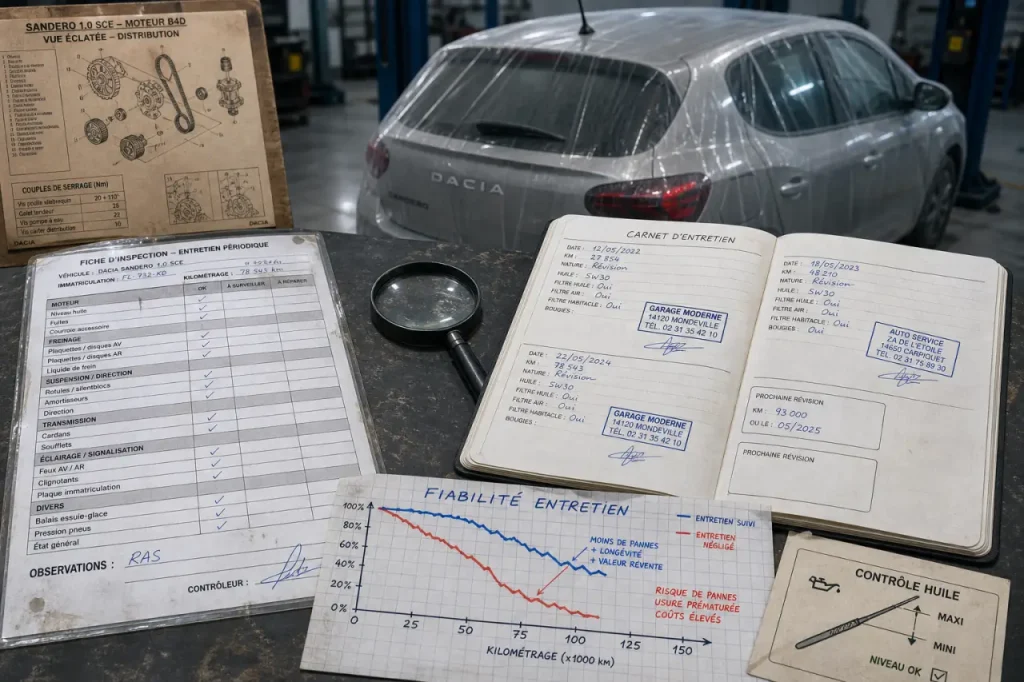 SANDERO 1.0 SCE – MOTEUR B4D
VUE ÉCLATÉE – DISTRIBUTION
COUPLES DE SERRAGE (Nm)
20 + 110°
DACIA
DACIA
DACIA
FICHE D'INSPECTION – ENTRETIEN PÉRIODIQUE
VÉHICULE : DACIA SANDERO 1.0 SCE
IMMATRICULATION :
KILOMÉTRAGE : 78 543 km
OK
À SURVEILLER
À RÉPARER
MOTEUR
Niveau huile
Fuites
Courroie accessoire
FREINAGE
Plaquettes / disques AV
Plaquettes / disques AR
Liquide de frein
SUSPENSION / DIRECTION
Rotules / silentblocs
Amortisseurs
Direction
TRANSMISSION
Cardans
Soufflets
ÉCLAIRAGE / SIGNALISATION
Feux AV / AR
Clignotants
Plaque immatriculation
DIVERS
Balais essuie-glace
Pression pneus
État général
OBSERVATIONS : RAS
CONTRÔLEUR :
CARNET D'ENTRETIEN
DATE : 12/05/2022
KM : 27 854
NATURE : Révision
HUILE : 5W30
FILTRE HUILE : Oui
FILTRE AIR : Oui
FILTRE HABITACLE : Oui
BOUGIES :
GARAGE MODERNE
14120 MONDEVILLE
TÉL. 02 31 35 42 10
DATE : 22/05/2024
KM : 78 543
NATURE : Révision
HUILE : 5W30
FILTRE HUILE : Oui
FILTRE AIR : Oui
FILTRE HABITACLE : Oui
BOUGIES :
GARAGE MODERNE
14120 MONDEVILLE
TÉL. 02 31 35 42 10
DATE : 18/05/2023
KM : 48 210
NATURE : Révision
HUILE : 5W30
FILTRE HUILE : Oui
FILTRE AIR : Oui
FILTRE HABITACLE : Oui
BOUGIES : Oui
AUTO SERVICE
ZA DE L'ÉTOILE
14650 CARPIQUET
TÉL. 02 31 75 89 30
PROCHAINE RÉVISION
KM : 93 000
OU LE : 05/2025
PROCHAINE RÉVISION
FIABILITÉ ENTRETIEN
100%
80%
60%
40%
20%
0%
0
25
50
75
100
110
150
KILOMÉTRAGE (x1000 km)
ENTRETIEN SUIVI
ENTRETIEN
NÉGLIGÉ
MOINS DE PANNES
+ LONGÉVITÉ
+ VALEUR REVENTE
RISQUE DE PANNES
USURE PRÉMATURÉE
COÛTS ÉLEVÉS
CONTRÔLE HUILE
MAXI
MINI
NIVEAU OK